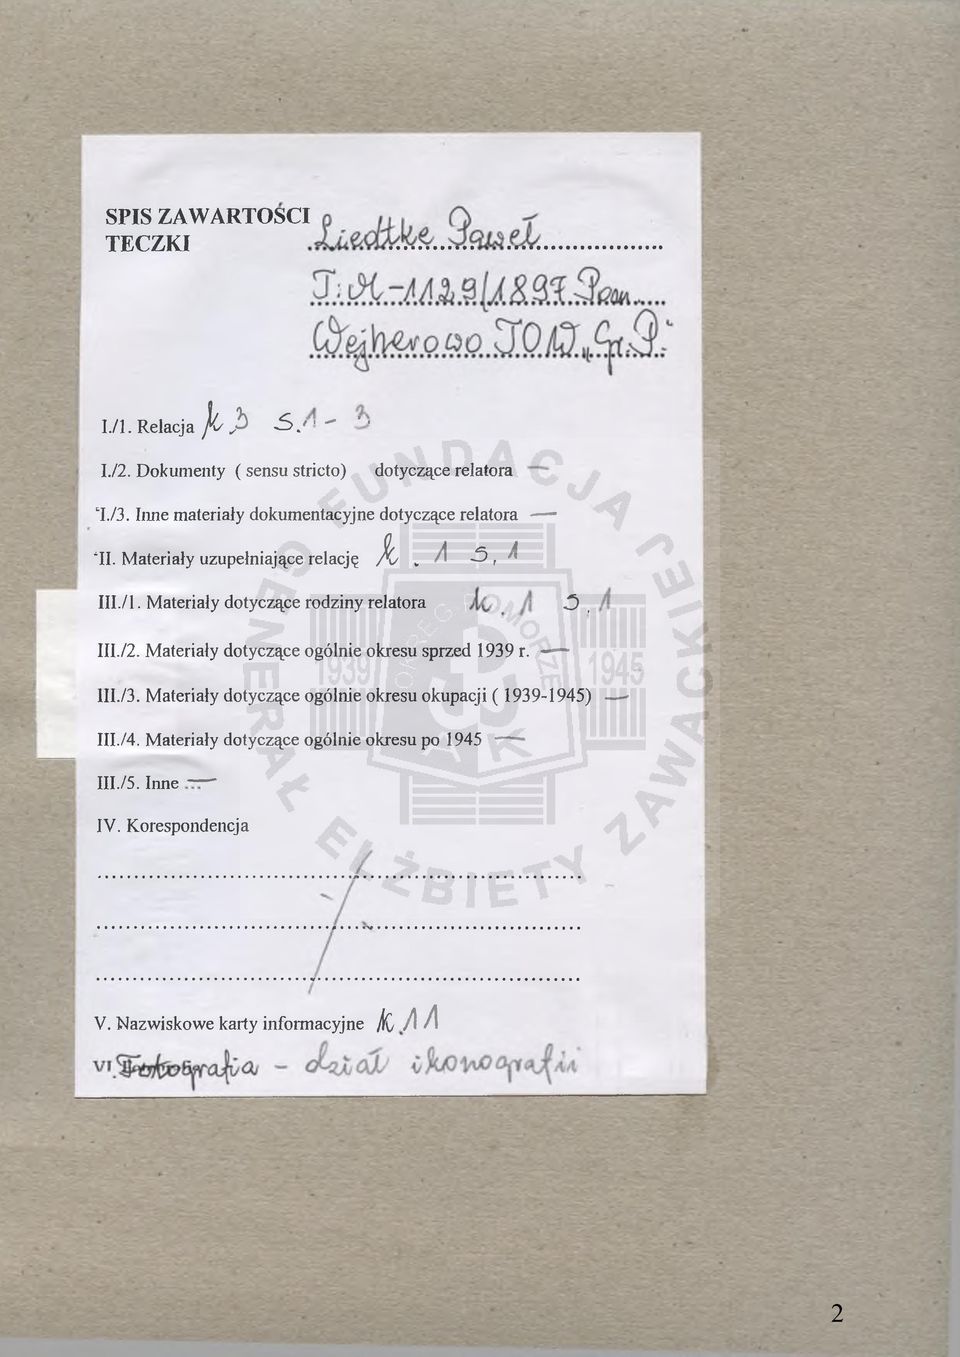 SPIS ZAWARTOŚCI
TECZKI Liedtke Paweł
T: M-1129/1897 Pom.
Wejherowo TOW „Gr. P."
I./1. Relacja k. 3 s. 1 - 3
I./2. Dokumenty ( sensu stricto) dotyczące relatora —
I./3. Inne materiały dokumentacyjne dotyczące relatora —
II. Materiały uzupełniające relację k. 1 s. 1
III./1. Materiały dotyczące rodziny relatora k. 1 s. 1
III./2. Materiały dotyczące ogólnie okresu sprzed 1939 r. —
III./3. Materiały dotyczące ogólnie okresu okupacji ( 1939-1945) —
III./4. Materiały dotyczące ogólnie okresu po 1945 —
III./5. Inne ... —
IV. Korespondencja
V. Nazwiskowe karty informacyjne k. 11
VI. Fotografia - dział ikonografii
FUNDACJA GENERAŁ ELŻBIETY ZAWACKIEJ
OKRĘG POMORZE
1939 1945
AK
2